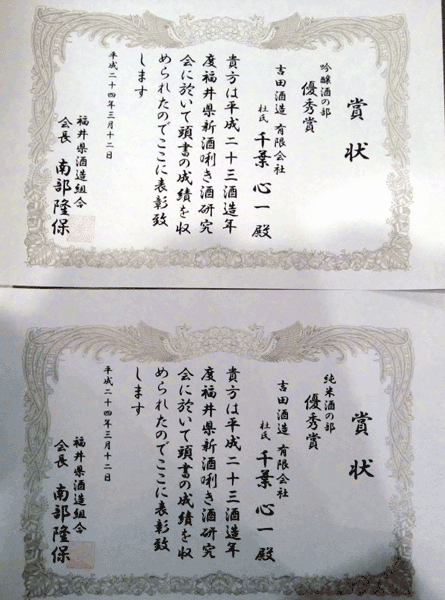 賞状
吟醸酒の部
優秀賞
吉田酒造 有限会社
杜氏 千葉 心一 殿
貴方は平成二十三酒造年
度福井県新酒唎き酒研究
会に於いて頭書の成績を収
められたのでここに表彰致
します
平成二十四年三月十二日
福井県酒造組合
会長 南部隆保
賞状
純米酒の部
優秀賞
吉田酒造 有限会社
杜氏 千葉 心一 殿
貴方は平成二十三酒造年
度福井県新酒唎き酒研究
会に於いて頭書の成績を収
められたのでここに表彰致
します
平成二十四年三月十二日
福井県酒造組合
会長 南部隆保